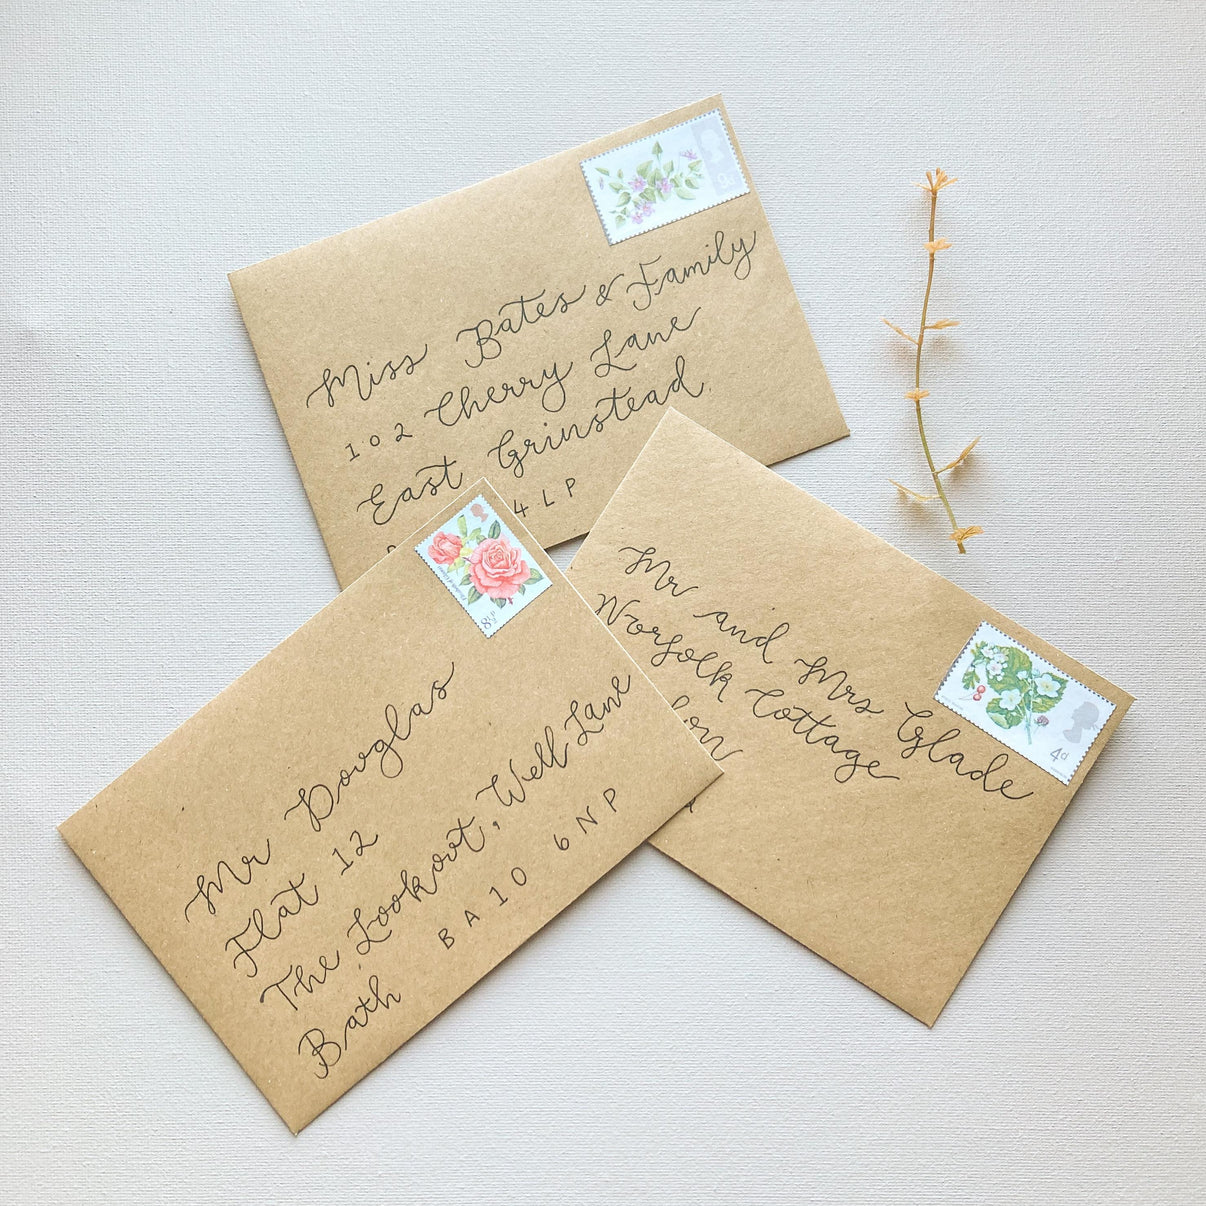 Miss Bates & Family
102 Cherry Lane
East Grinstead
4LP
9d
Mr and Mrs Glade
Norfolk Cottage
4d
Mr Douglas
Flat 12
The Lookout, Well Lane
Bath BA10 6NP
8½p